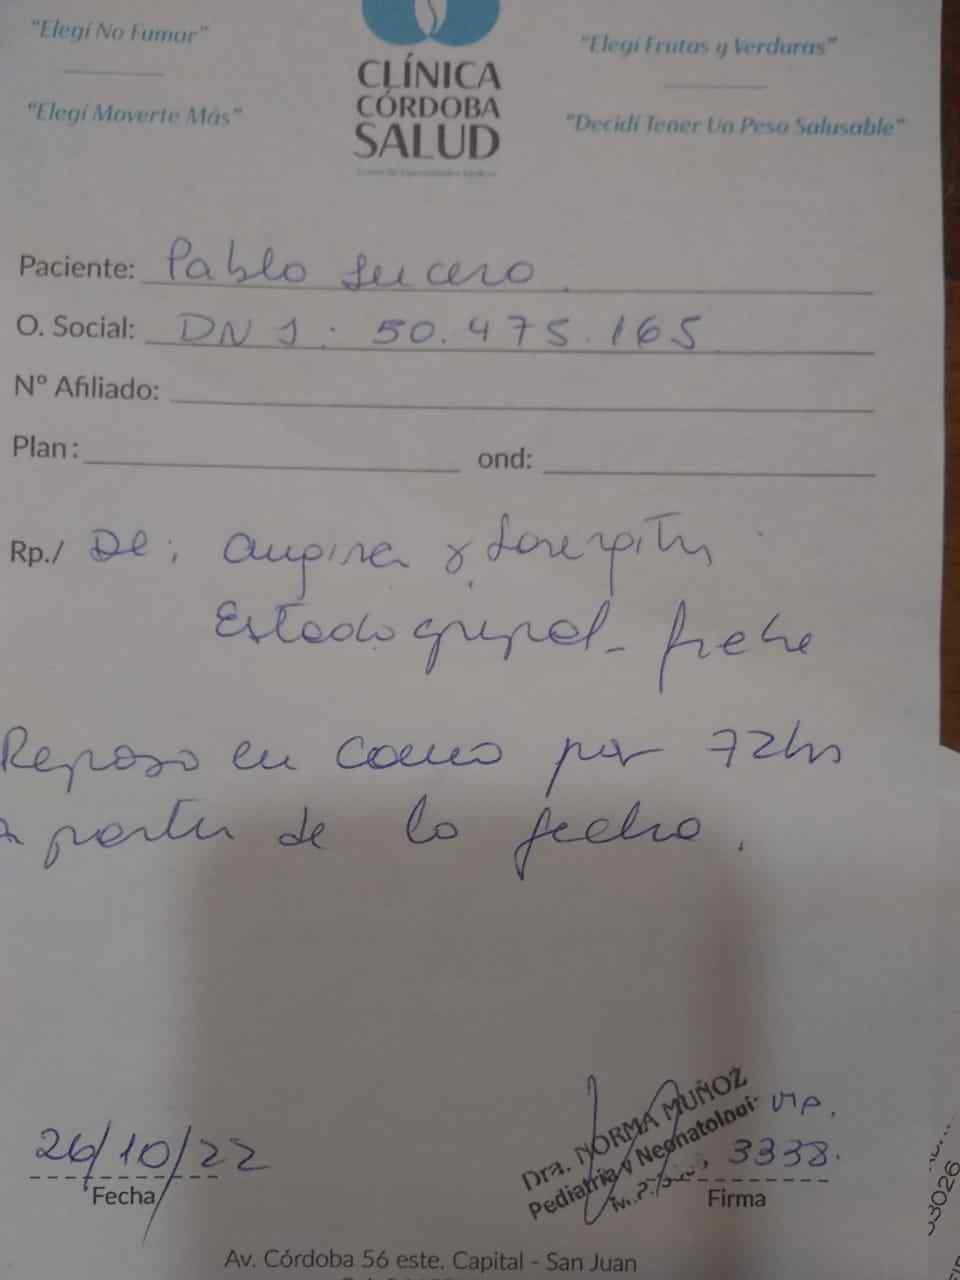 "Elegí No Fumar"
"Elegí Frutas y Verduras"
"Elegí Moverte Más"
"Decidí Tener Un Peso Salusable"
CLÍNICA
CÓRDOBA
SALUD
Paciente: Pablo Lucero
O. Social: DNI: 50.475.165
Nº Afiliado:
Plan: ond:
Rp./ De: angina y
Estado gripal - fiebre
Reposo en cama por 72hs
a partir de la fecha.
26/10/22
Fecha
Dra. NORMA MUÑOZ
Pediatría y Neonatología
MP.
3338.
Firma
Av. Córdoba 56 este. Capital - San Juan
53026